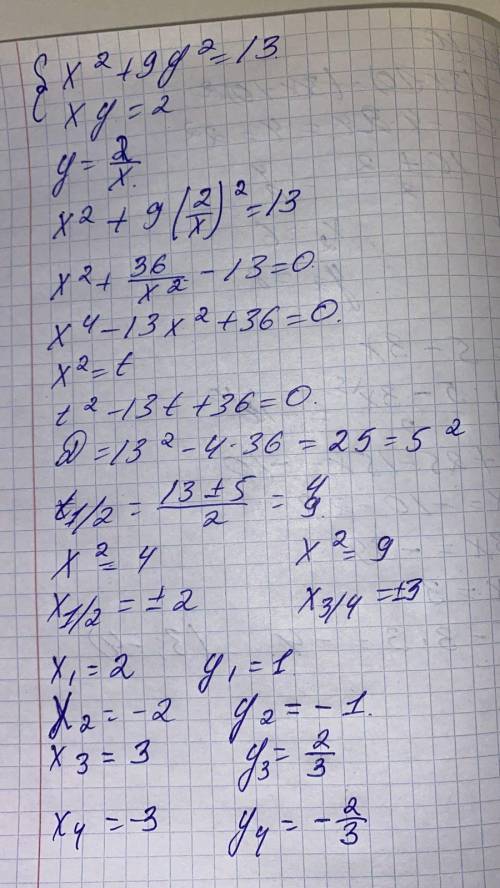 { x² + 9y² = 13.
xy = 2
y = 2/x.
x² + 9(2/x)² = 13
x² + 36/x² - 13 = 0.
x⁴ - 13x² + 36 = 0.
x² = t
t² - 13t + 36 = 0.
D = 13² - 4·36 = 25 = 5²
t1/2 = (13 ± 5)/2 = 4 9.
x² = 4 x² = 9
x1/2 = ±2 x3/4 = ±3
x₁ = 2 y₁ = 1
x₂ = -2 y₂ = -1.
x₃ = 3 y₃ = 2/3
x₄ = -3 y₄ = -2/3